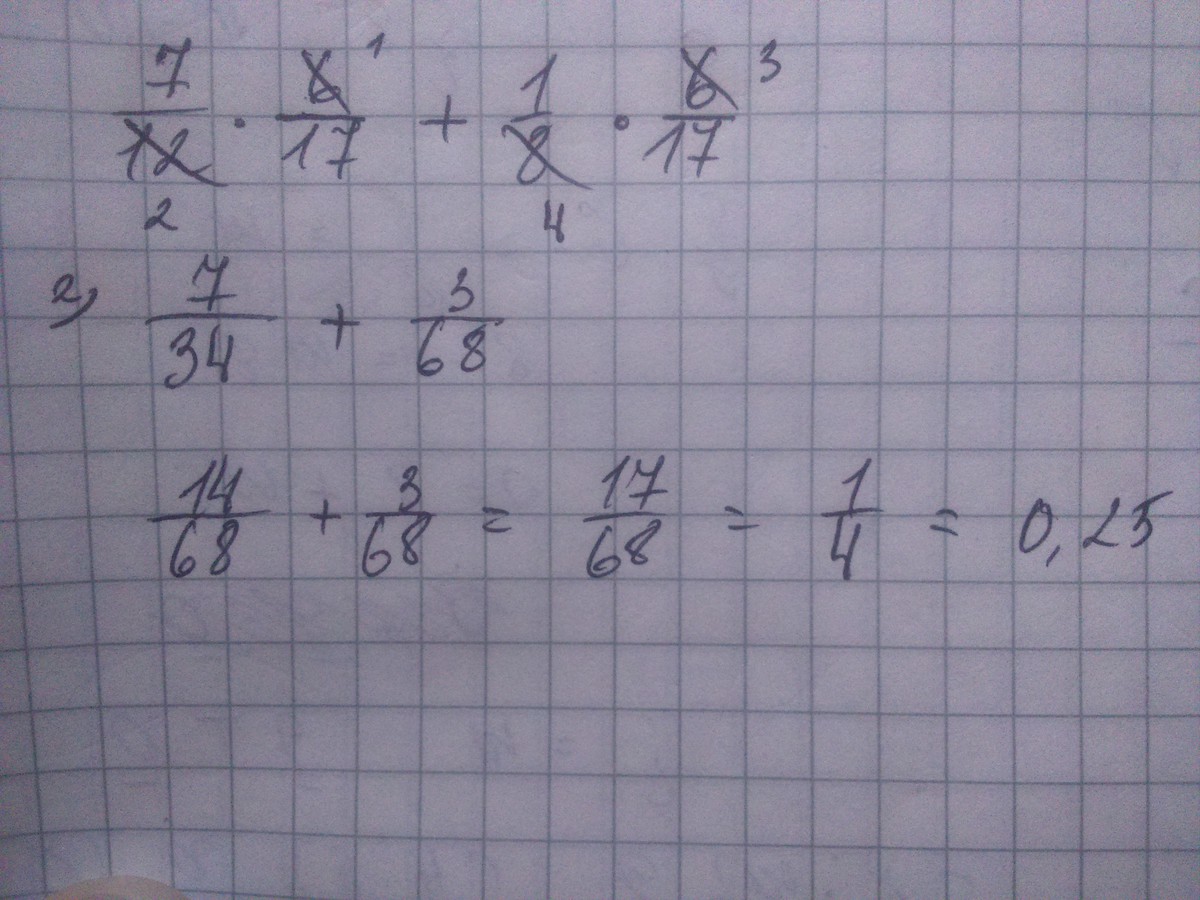 7/12 · 6/17 1 + 1/8 · 6/17 3
2 4
2) 7/34 + 3/68
14/68 + 3/68 = 17/68 = 1/4 = 0,25